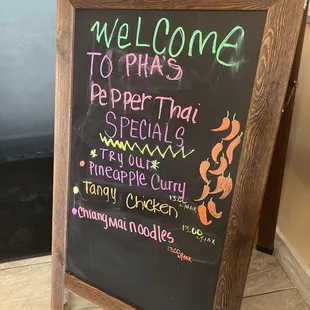 WeLCOMe
TO PHA'S
PePPeR THAI
SPECIALS
*TRY OUR*
PINEAPPLE CURRY
13.00
TANGY CHICKEN
13.00
CHIANG MAI NOODLES
13.00